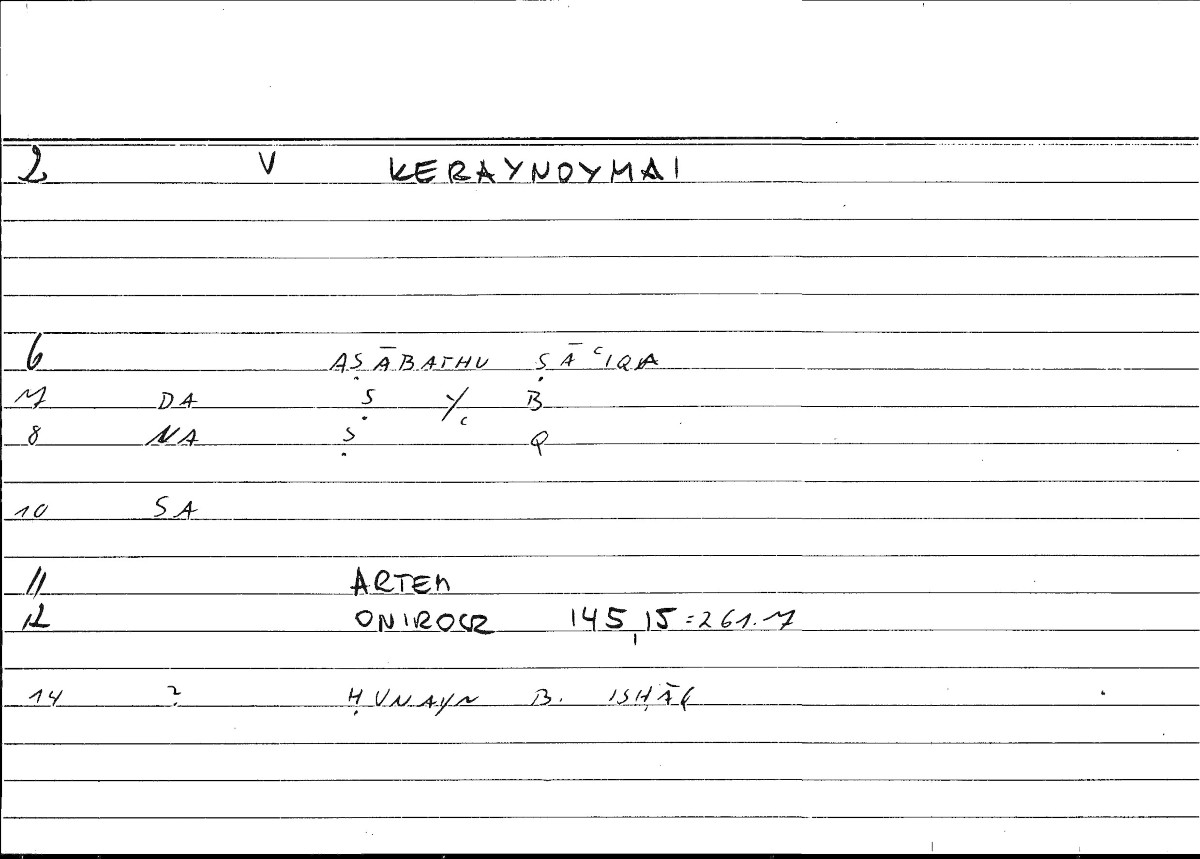 2 V KERAYNOYMAI
6 AṢĀBATHU ṢĀʿIQA
7 DA Ṣ Y/ʿ B
8 NA Ṣ Q
10 SA
11 ARTEM
12 ONIROCR 145,15=261.7
14 ? ḤUNAYN B. ISḤĀQ